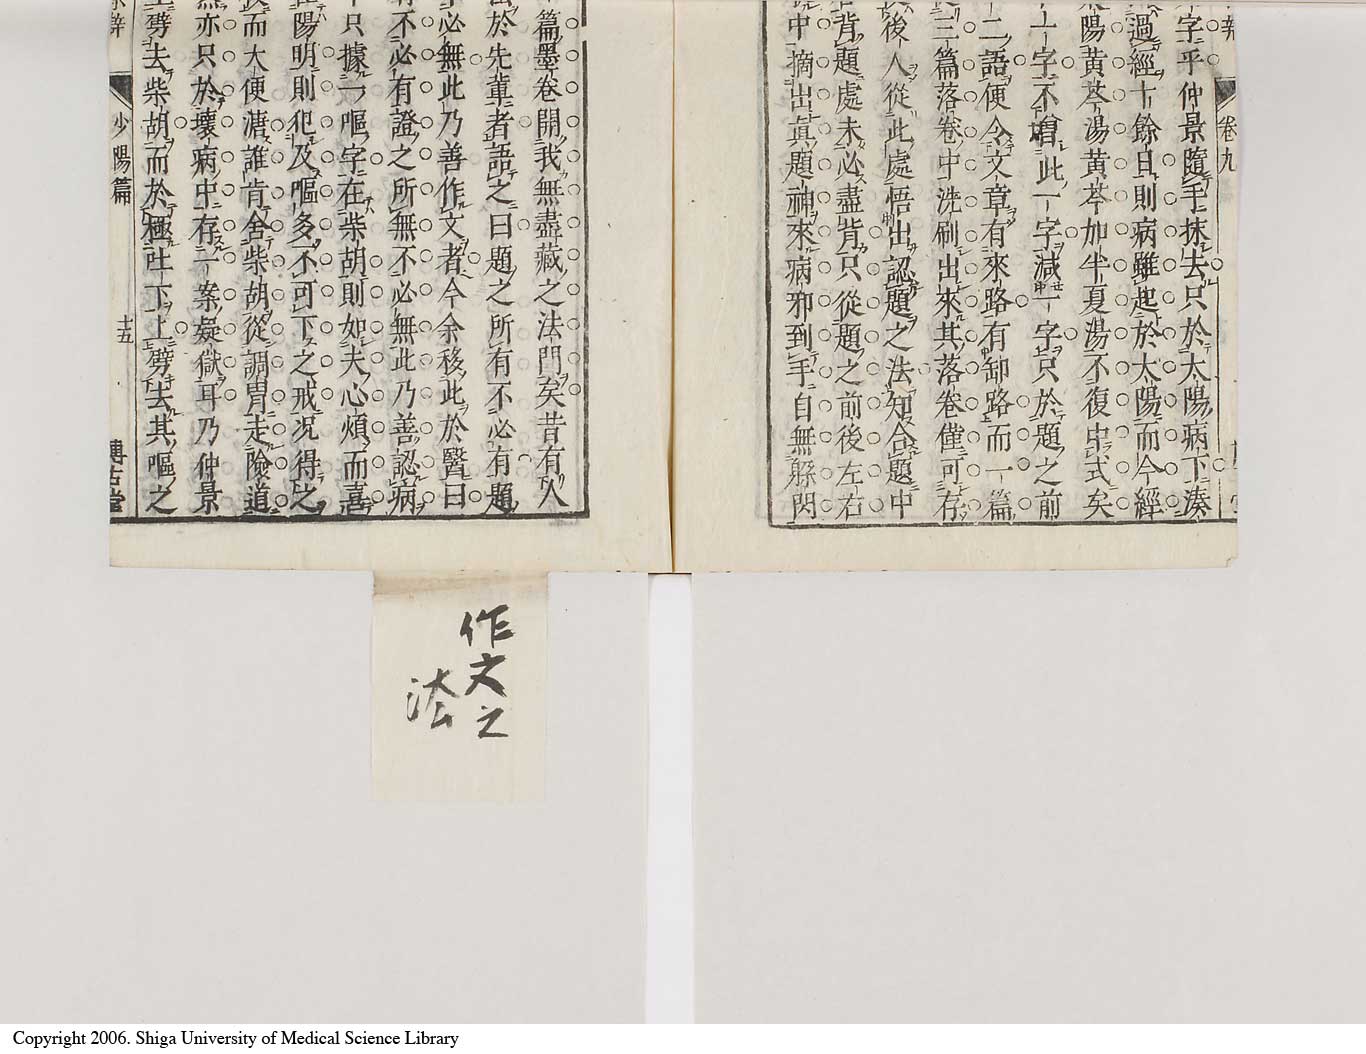 卷九
字乎仲景隨手抹去只於太陽病下湊
過經十餘日則病雖起於太陽而今經
陽黃芩湯黃芩加半夏湯不復中式矣
一字不增此一字減一字只於題之前
二語便令文章有來路有卸路而一篇
三篇落卷中洗刷出來其落卷僅可存
後人從此處悟出認題之法知合題中
背題處未必盡背只從題之前後左右
中摘出真題神來病邪到手自無躲閃
篇墨卷開我無盡藏之法門矣昔有人
於先輩者語之曰題之所有不必有題
必無此乃善作文者今余移此於醫曰
不必有證之所無不必無此乃善認病
只據一嘔字在柴胡則如夫心煩而喜
陽明則犯及嘔多不可下之戒況得之
而大便溏誰肯舍柴胡從調胃走險道
亦只於壞病中存一案疑獄耳乃仲景
劈去柴胡而於極吐下上劈去其嘔之
少陽篇
十五
博古堂
作文之
法
Copyright 2006. Shiga University of Medical Science Library